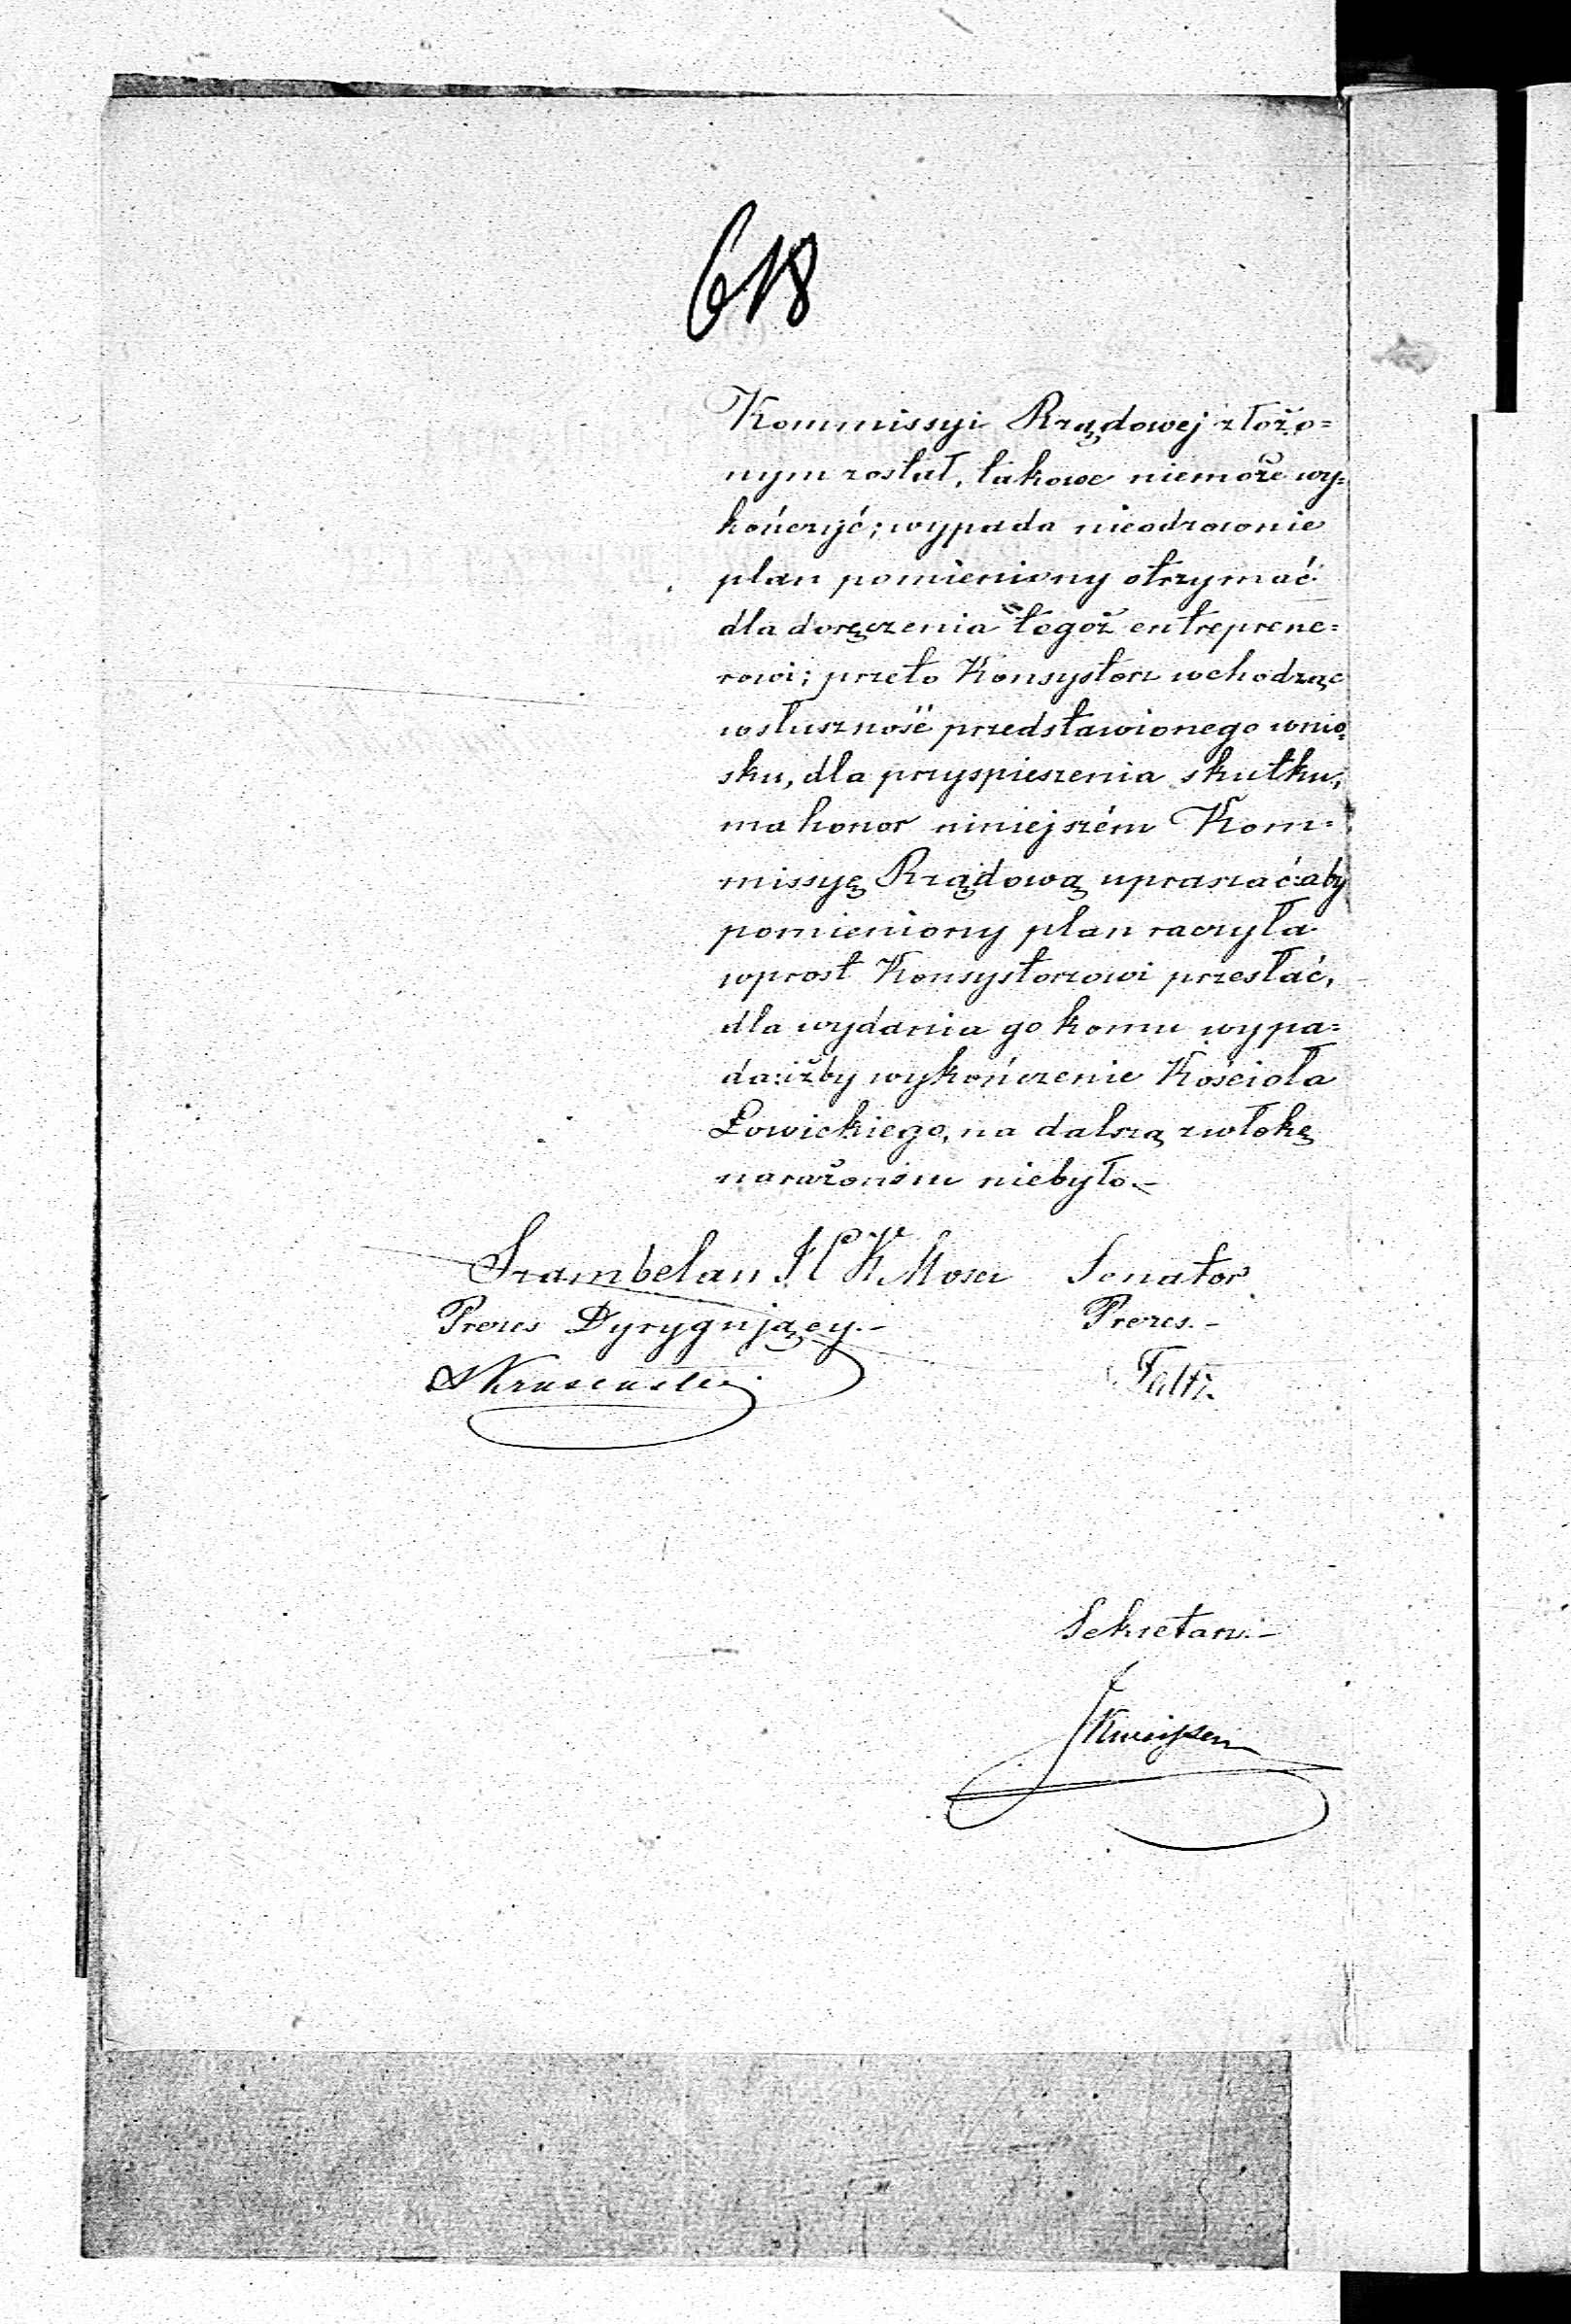 618
Kommissyi Rządowej złożo=
nym został, takowe niemoże wy=
kończyć; wypada nieodzownie
plan pomieniony otrzymać
dla doręczenia tegoż entreprene=
rowi; przeto Konsystorz wchodząc
w słuszność przedstawionego wnio=
sku, dla przyspieszenia skutku,
ma honor niniejszém Kom=
missyę Rządową upraszać: aby
pomieniony plan raczyła
wprost Konsystorzowi przesłać,
dla wydania go komu wypa=
da: iżby wykończenie Kościoła
Łowickiego, na dalszą zwłokę
narażoném niebyło.—
Szambelan J C K Mości Senator
Prezes Dyrygujący.— Prezes.—
Sekretarz.—